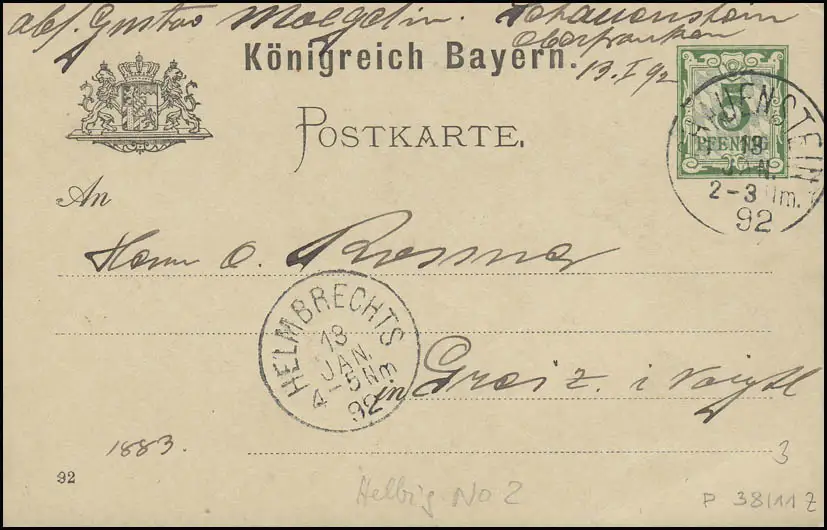 abs. Gustav Moegelin. Schauenstein
Oberfranken
Königreich Bayern.
13.I 92
5
PFENNIG
POSTKARTE.
HAUENSTEIN
13
JAN.
2-3 Nm.
92
An
Herrn O.
HELMBRECHTS
13
JAN.
4-5 Nm
92
in Greiz. i Voigtl
1883.
3
92
Helbig No 2
P 38/11 Z